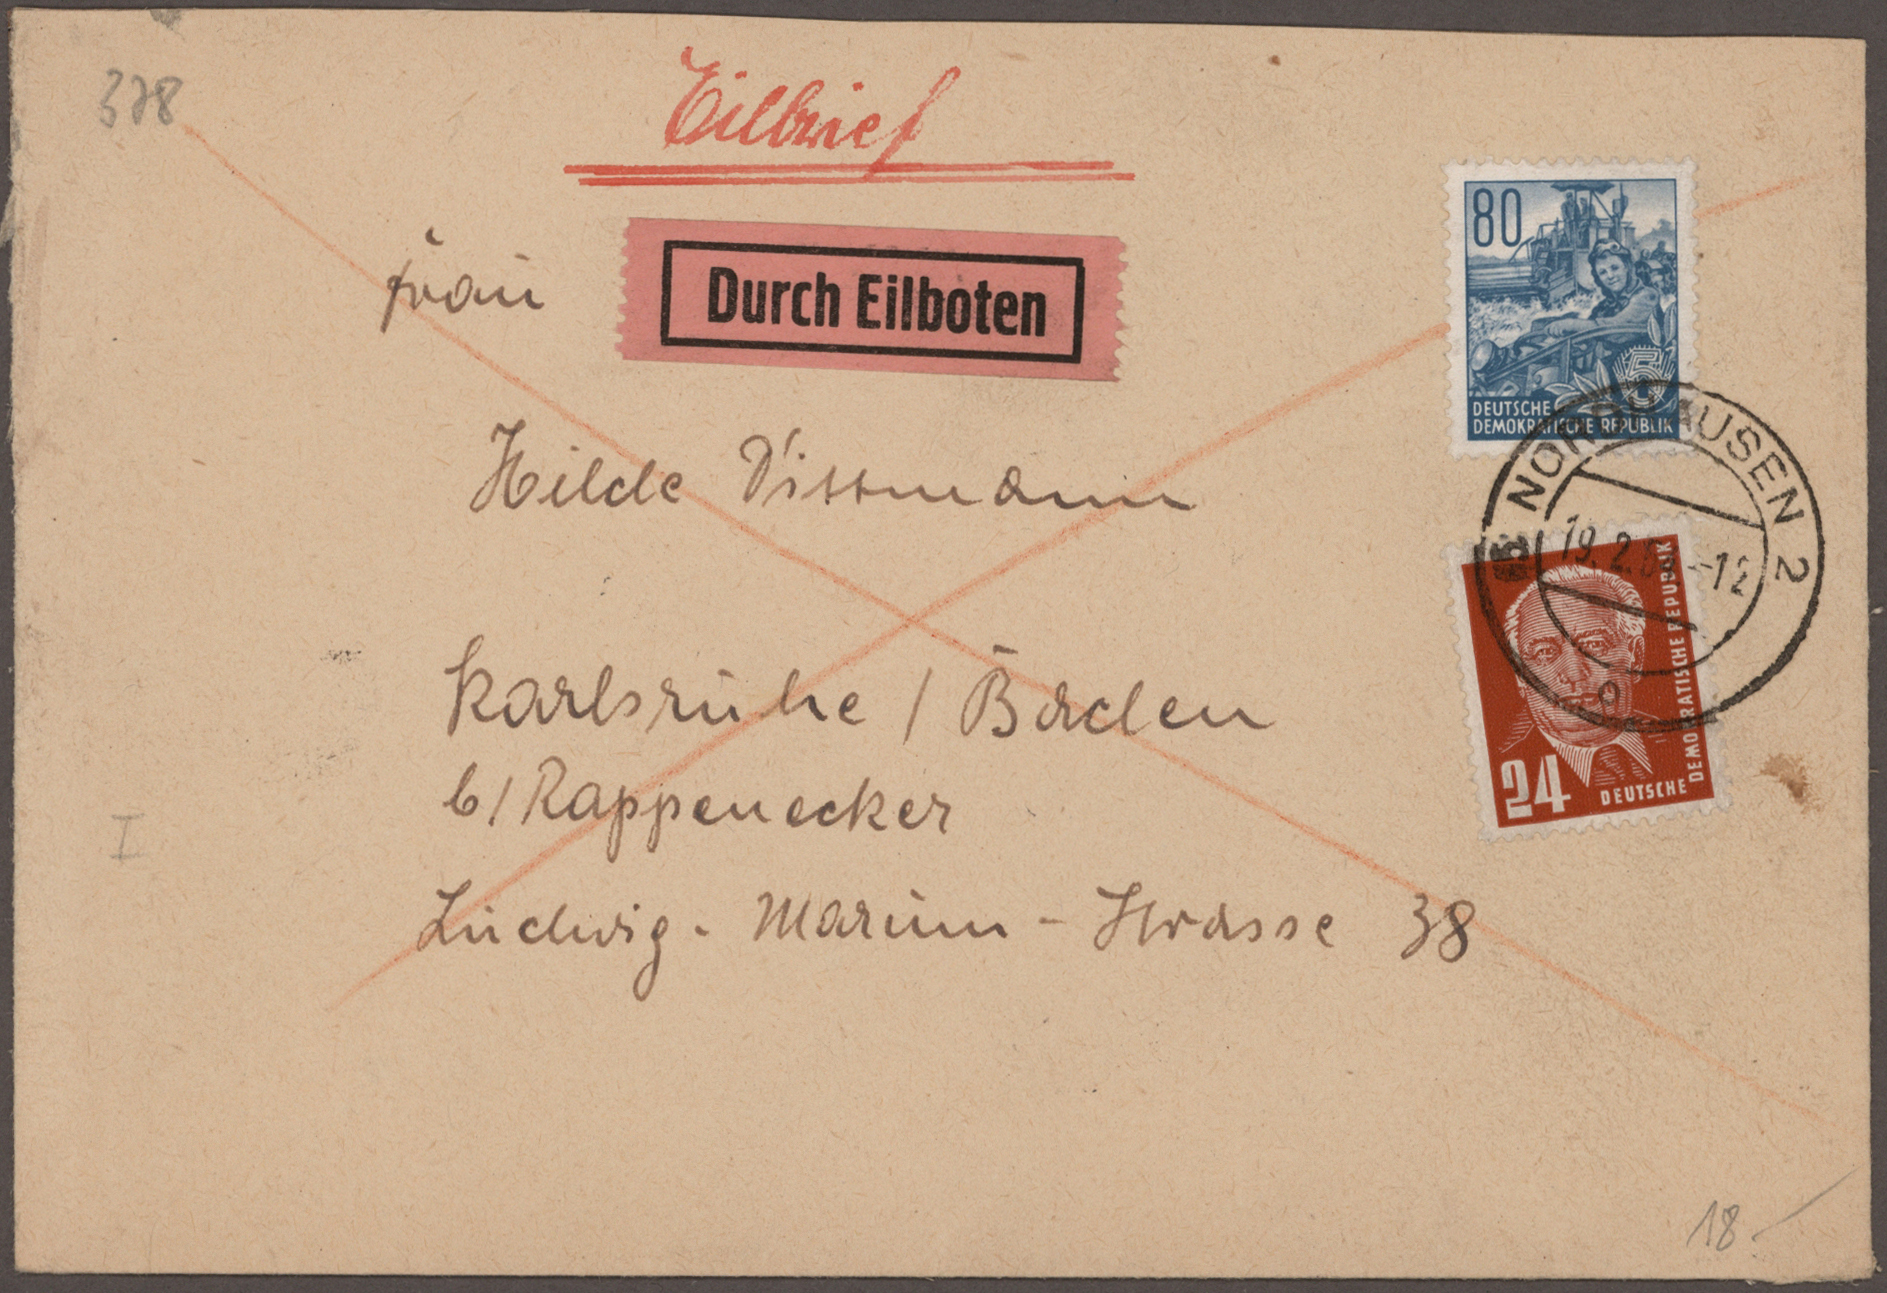 378
Eilbrief
Durch Eilboten
80
5
DEUTSCHE
DEMOKRATISCHE REPUBLIK
Frau
Hilde Dittmann
Karlsruhe / Baden
b/ Rappenecker
Ludwig-Marum-Strasse 38
NORDHAUSEN 2
19.2. -12
o
24
DEUTSCHE
DEMOKRATISCHE REPUBLIK
I
18.-